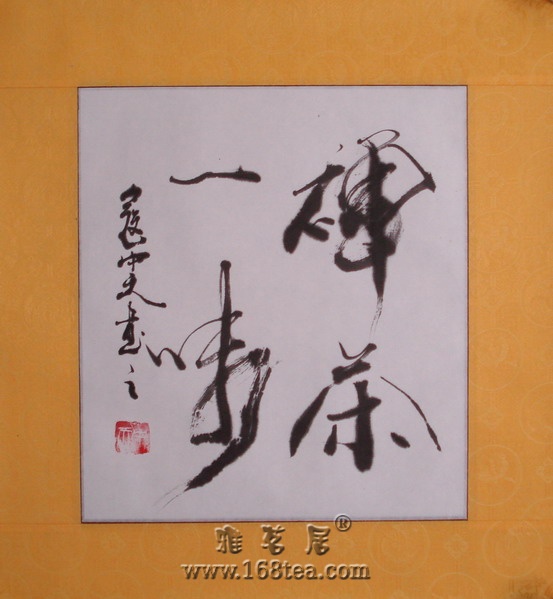 禪茶
一味
雅茗居®
www.168tea.com